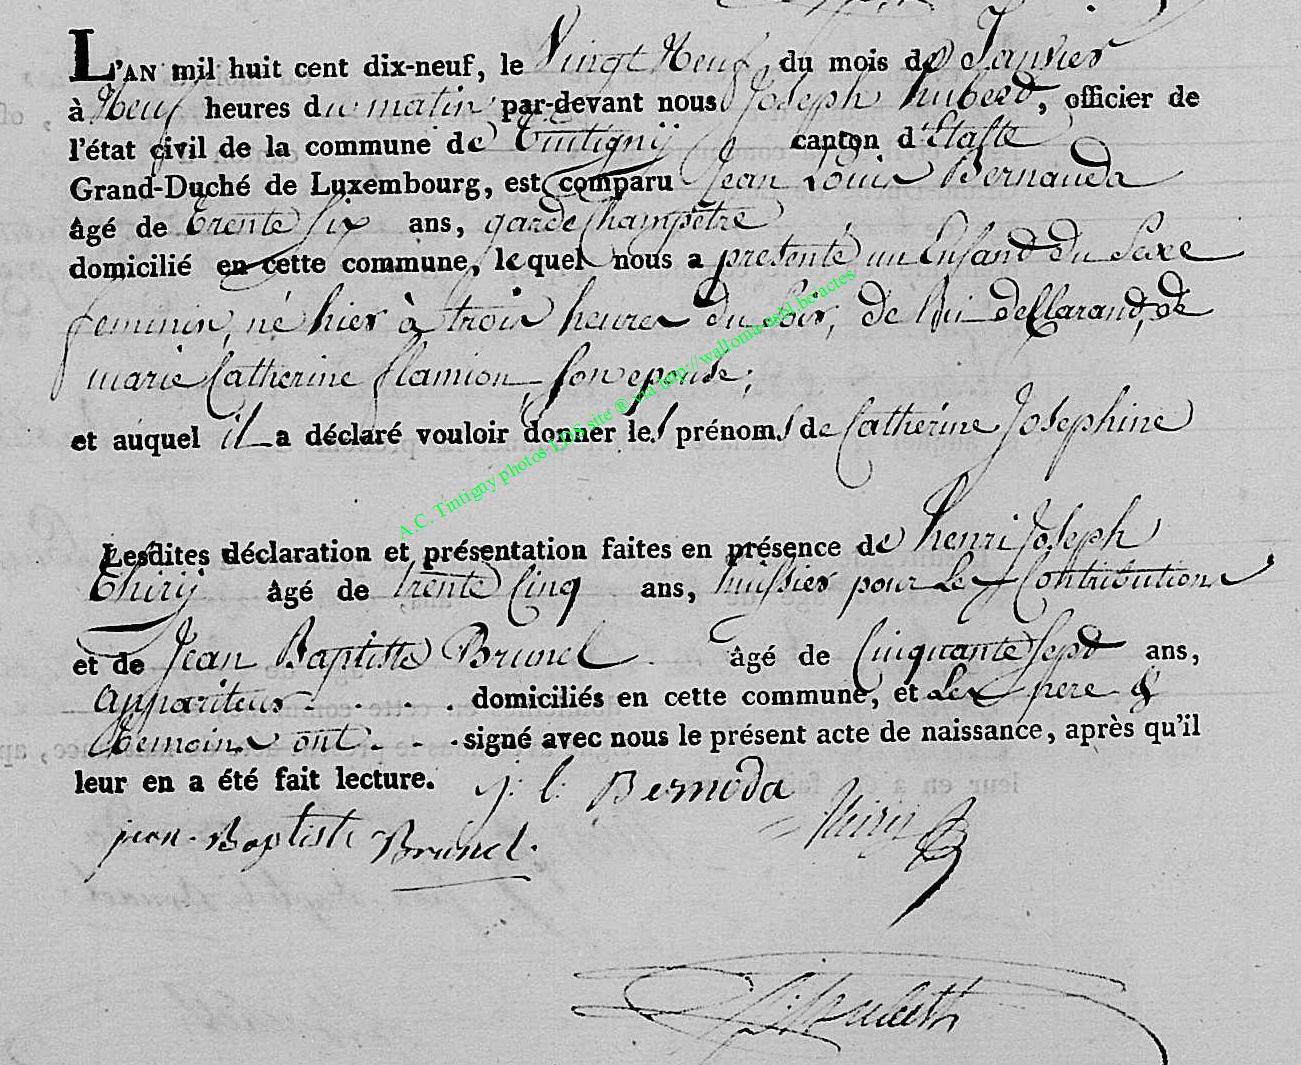 L'AN mil huit cent dix-neuf, le Vingt Neuf du mois de Janvier
à Neuf heures du matin par-devant nous Joseph huberd, officier de
l'état civil de la commune de Tintignÿ canton d'Etalle
Grand-Duché de Luxembourg, est comparu Jean Louis Bernauda
âgé de trente six ans, garde Champêtre
domicilié en cette commune, lequel nous a presenté un Enfand du Sexe
feminin, né hier à trois heures du soir, de lui desClarand, de
marie Catherine flamion son epouse;
et auquel il a déclaré vouloir donner les prénoms de Catherine Josephine
A.C. Tintigny photos LDS site ® via http://wallonia-asbl.be/actes
Lesdites déclaration et présentation faites en présence de henri Joseph
Thirÿ âgé de trente Cinq ans, huissier pour Les Contributions
et de Jean Baptiste Brunel âgé de Cinquante sept ans,
appariteur . . . . domiciliés en cette commune, et Les pere &
temoins ont . . . signé avec nous le présent acte de naissance, après qu'il
leur en a été fait lecture. j: l: Bernoda
jean-Baptiste Brunel. Thiry